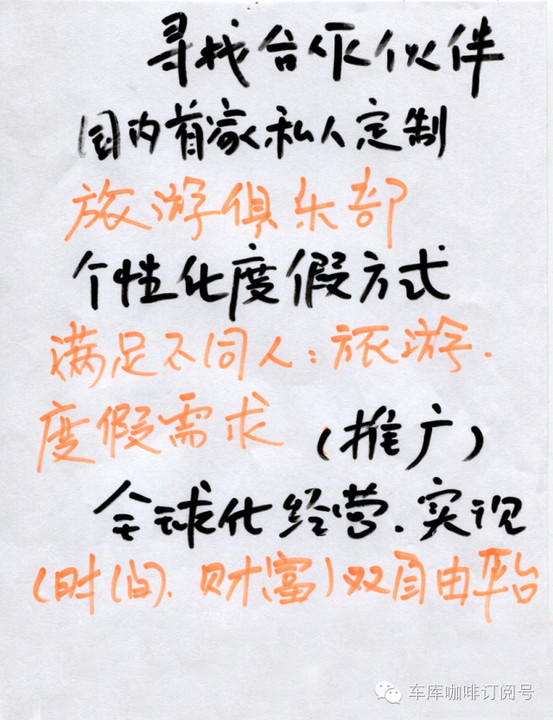 寻找合伙伙伴
国内首家私人定制
旅游俱乐部
个性化度假方式
满足不同人：旅游.
度假需求（推广）
全球化经营.实现
（时间.财富）双自由平台
车库咖啡订阅号